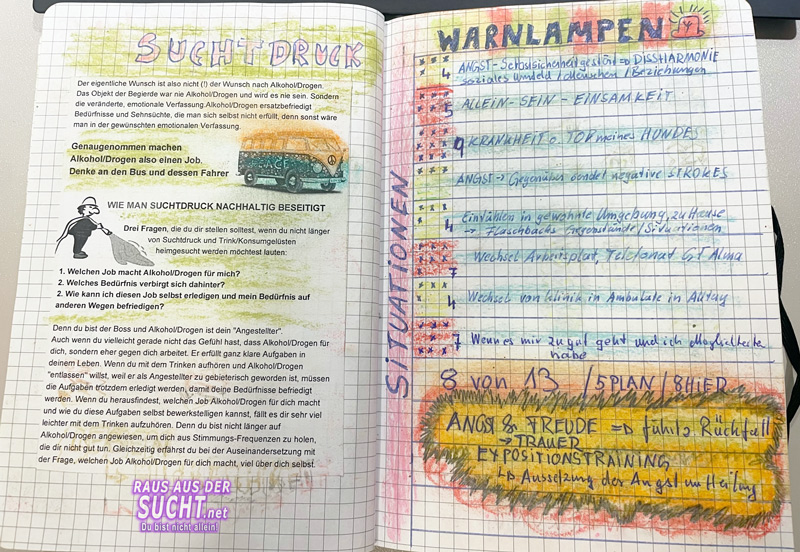 SUCHTDRUCK
Der eigentliche Wunsch ist also nicht (!) der Wunsch nach Alkohol/Drogen.
Das Objekt der Begierde war nie Alkohol/Drogen und wird es nie sein. Sondern
die veränderte, emotionale Verfassung.Alkohol/Drogen ersatzbefriedigt
Bedürfnisse und Sehnsüchte, die man sich selbst nicht erfüllt, denn sonst wäre
man in der gewünschten emotionalen Verfassung.
Genaugenommen machen
Alkohol/Drogen also einen Job.
Denke an den Bus und dessen Fahrer
WIE MAN SUCHTDRUCK NACHHALTIG BESEITIGT
Drei Fragen, die du dir stellen solltest, wenn du nicht länger
von Suchtdruck und Trink/Konsumgelüsten
heimgesucht werden möchtest lauten:
1. Welchen Job macht Alkohol/Drogen für mich?
2. Welches Bedürfnis verbirgt sich dahinter?
2. Wie kann ich diesen Job selbst erledigen und mein Bedürfnis auf
anderen Wegen befriedigen?
Denn du bist der Boss und Alkohol/Drogen ist dein "Angestellter".
Auch wenn du vielleicht gerade nicht das Gefühl hast, dass Alkohol/Drogen für
dich, sondern eher gegen dich arbeitet. Er erfüllt ganz klare Aufgaben in
deinem Leben. Wenn du mit dem Trinken aufhören und Alkohol/Drogen
"entlassen" willst, weil er als Angestellter zu gebieterisch geworden ist, müssen
die Aufgaben trotzdem erledigt werden, damit deine Bedürfnisse befriedigt
werden. Wenn du herausfindest, welchen Job Alkohol/Drogen für dich macht
und wie du diese Aufgaben selbst bewerkstelligen kannst, fällt es dir sehr viel
leichter mit dem Trinken aufzuhören. Denn du bist nicht länger auf
Alkohol/Drogen angewiesen, um dich aus Stimmungs-Frequenzen zu holen,
die dir nicht gut tun. Gleichzeitig erfährst du bei der Auseinandersetzung mit
der Frage, welchen Job Alkohol/Drogen für dich macht, viel über dich selbst.
RAUS-AUS-DER
SUCHT.net
Du bist nicht allein!
SITUATIONEN
WARNLAMPEN
4 ANGST - Selbstsicherheit gestört => DISSHARMONIE
soziales Umfeld / Menschen / Beziehungen
5 ALLEIN - SEIN - EINSAMKEIT
9 KRANKHEIT o. TOD meines HUNDES
ANGST -> Gegenüber sendet negative STROKES
4 Einfühlen in gewohnte Umgebung, zu Hause
-> Flaschbacks Gegenstände / Situationen
7 Wechsel Arbeitsplat, Telefonat
4 Wechsel von Klinik in Ambulate in Alltag
7 Wenn es mir zu gut geht und ich
habe
8 von 13 / 5 PLAN / 8 HIER
ANGST & FREUDE => führt z Rückfall
-> TRAUER
EXPOSITIONSTRAINING
Aussetzung der Angst um Heilung